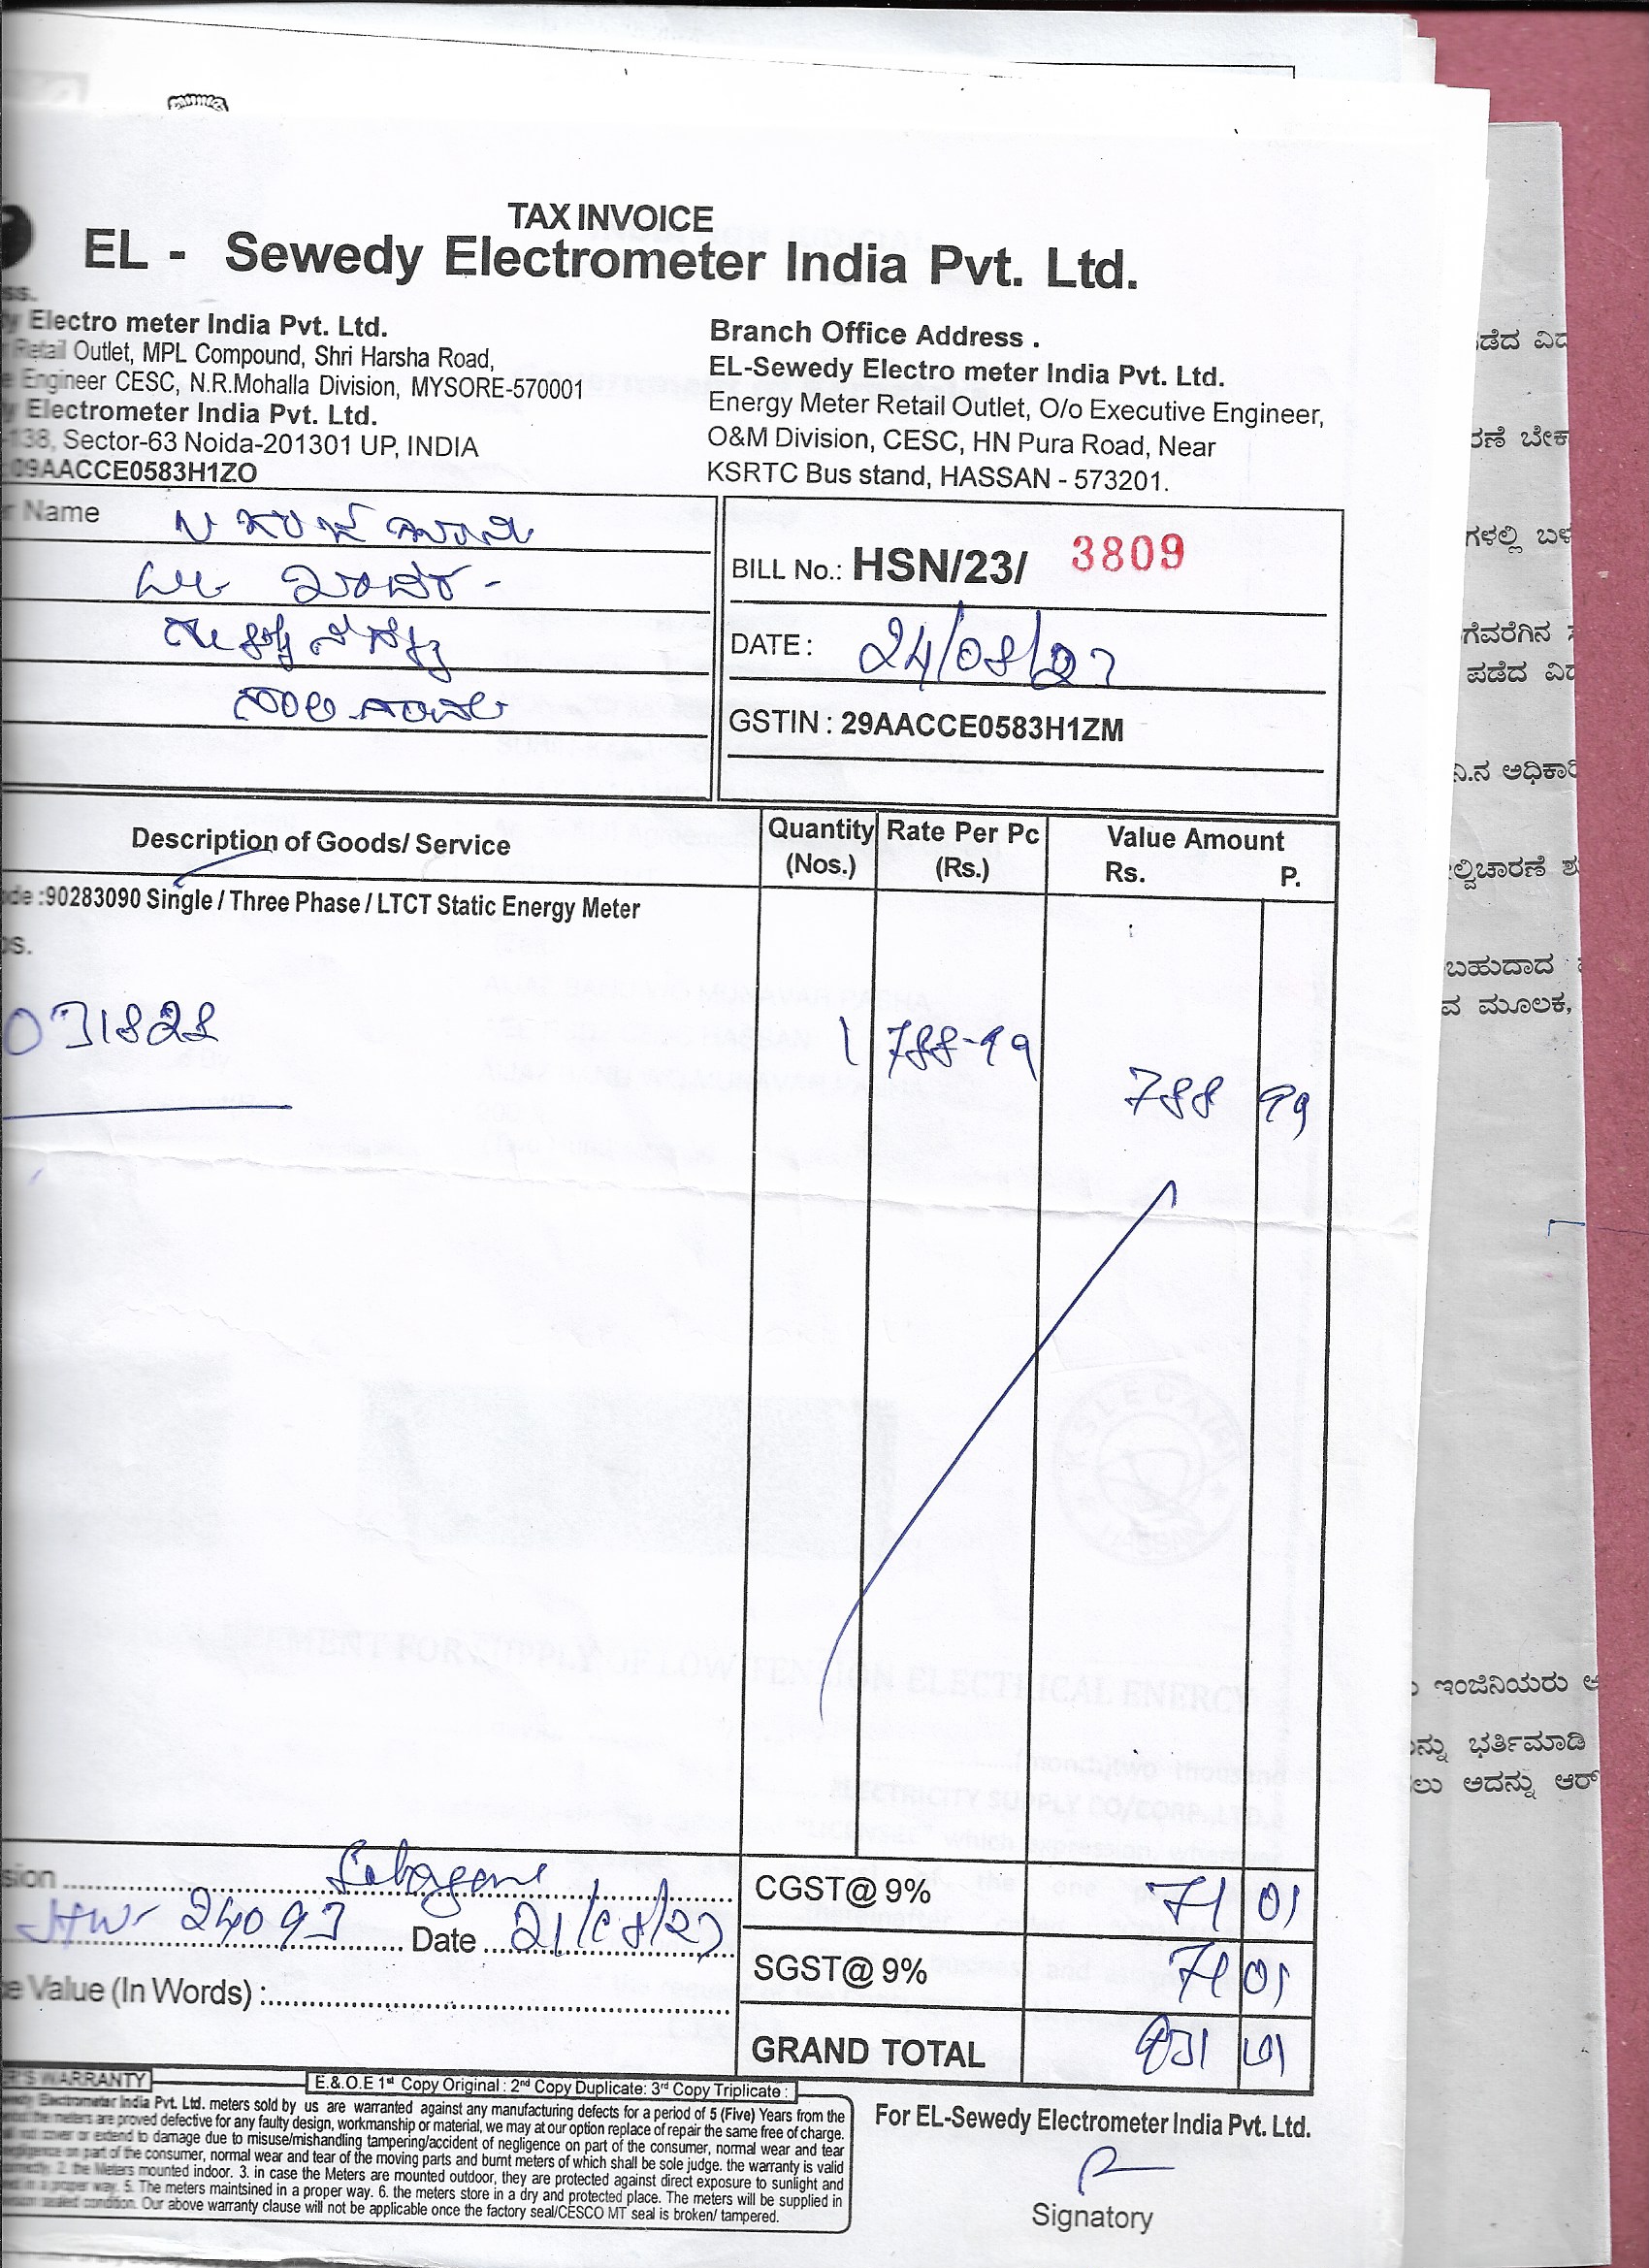 TAX INVOICE
EL - Sewedy Electrometer India Pvt. Ltd.
ss.
y Electro meter India Pvt. Ltd.
Retail Outlet, MPL Compound, Shri Harsha Road,
e Engineer CESC, N.R.Mohalla Division, MYSORE-570001
y Electrometer India Pvt. Ltd.
-138, Sector-63 Noida-201301 UP, INDIA
09AACCE0583H1ZO
Branch Office Address .
EL-Sewedy Electro meter India Pvt. Ltd.
Energy Meter Retail Outlet, O/o Executive Engineer,
O&M Division, CESC, HN Pura Road, Near
KSRTC Bus stand, HASSAN - 573201.
r Name
BILL No.: HSN/23/ 3809
DATE : 24/08/23
GSTIN : 29AACCE0583H1ZM
Description of Goods/ Service Quantity (Nos.) Rate Per Pc (Rs.) Value Amount Rs. P.
ode :90283090 Single / Three Phase / LTCT Static Energy Meter
os.
031828 1 788-99 788 99
sion
24093 Date 21/08/23
e Value (In Words) :
CGST@ 9% 71 01
SGST@ 9% 71 01
GRAND TOTAL 931 01
ER'S WARRANTY
E.&.O.E 1st Copy Original : 2nd Copy Duplicate: 3rd Copy Triplicate :
wedy Electrometer India Pvt. Ltd. meters sold by us are warranted against any manufacturing defects for a period of 5 (Five) Years from the
the meters are proved defective for any faulty design, workmanship or material, we may at our option replace of repair the same free of charge.
not cover or extend to damage due to misuse/mishandling tampering/accident of negligence on part of the consumer, normal wear and tear
negligence on part of the consumer, normal wear and tear of the moving parts and burnt meters of which shall be sole judge. the warranty is valid
correctly. 2. the Meters mounted indoor. 3. in case the Meters are mounted outdoor, they are protected against direct exposure to sunlight and
in a proper way. 5. The meters maintsined in a proper way. 6. the meters store in a dry and protected place. The meters will be supplied in
sealed condition. Our above warranty clause will not be applicable once the factory seal/CESCO MT seal is broken/ tampered.
For EL-Sewedy Electrometer India Pvt. Ltd.
Signatory
ಡೆದ ವಿದ
ರಣೆ ಬೇಕ
ಗಳಲ್ಲಿ ಬಳ
ಗೆವರೆಗಿನ
ಪಡೆದ ವಿದ
ನಿ.ನ ಅಧಿಕಾರಿ
ಲ್ವಿಚಾರಣೆ ಶು
ಬಹುದಾದ
ವ ಮೂಲಕ,
ಇಂಜಿನಿಯರು ಅ
ನ್ನು ಭರ್ತಿಮಾಡಿ
ಲು ಅದನ್ನು ಆರ್